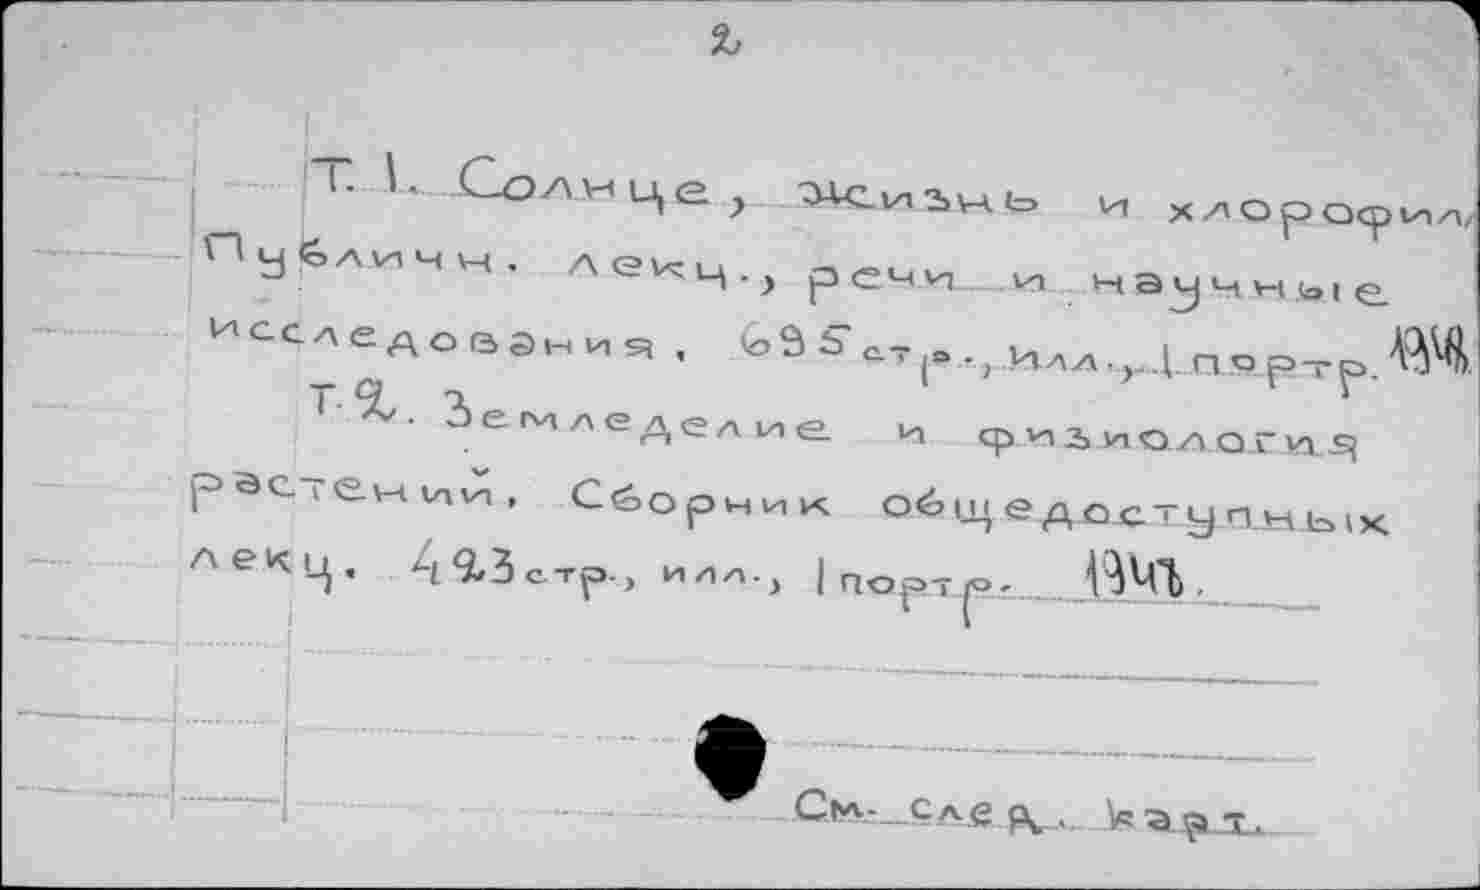 2
Т. 1. Солнце, жизнь и хлорофил.
Публичн. лекц., речи и научные
исследования, 695 стр., илл., 1 портр. 1948.
Т. 2. Земледелие и физиология
растений. Сборник общедоступных
лекц. 423 стр., илл., 1 портр. 1948.
См. след. карт.